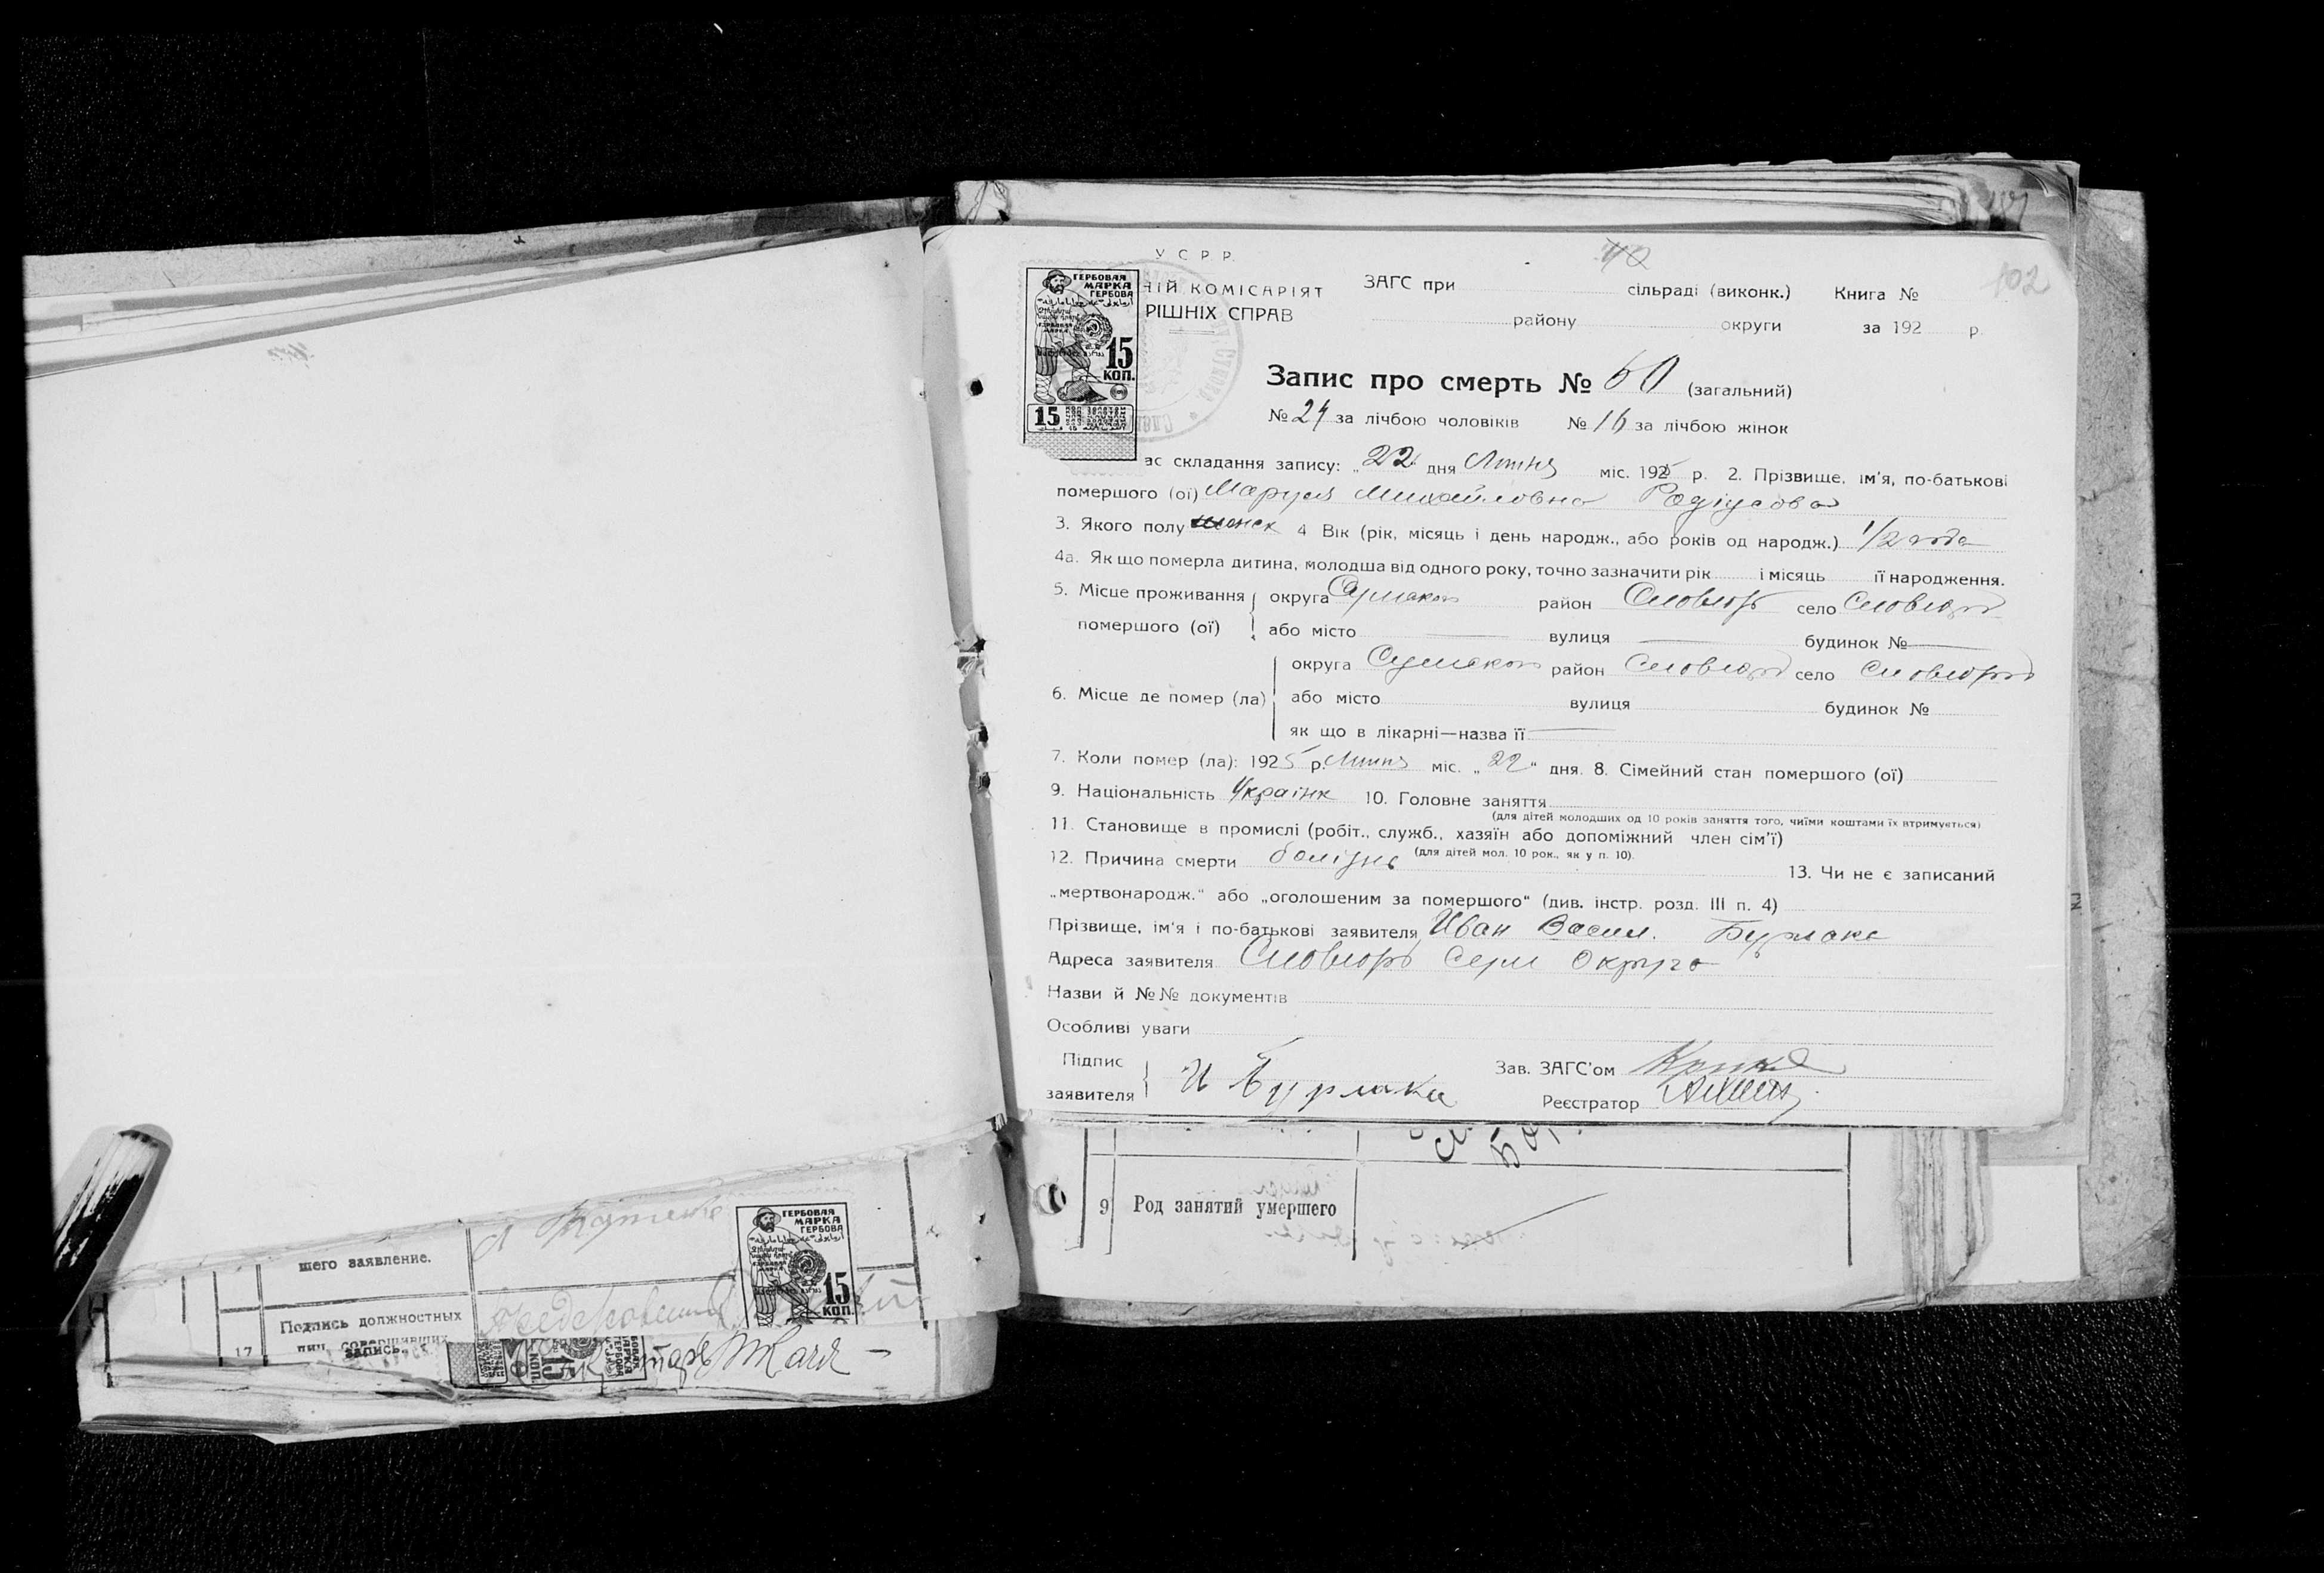 У С Р Р.
НІЙ КОМІСАРІЯТ
РІШНІХ СПРАВ
ЗАГС при сільраді (виконк.) Книга №
району округи за 192 р.
102
ГЕРБОВАЯ
МАРКА
ГЕРБОВА
15
КОП.
15
Запис про смерть № 60 (загальний)
№ 24 за лічбою чоловіків № 16 за лічбою жінок
ас складання запису: „22“ дня Липня міс. 1925 р. 2. Прізвище, ім'я, по-батькові
помершого (ої) Маруся Михайловна
3. Якого полу женск 4 Вік (рік, місяць і день народж., або років од народж.) 1/2 года
4а. Як що померла дитина, молодша від одного року, точно зазначити рік і місяць її народження.
5. Місце проживання округа район село
помершого (ої) або місто — вулиця — будинок № —
округа Сумская район село
6. Місце де помер (ла) або місто вулиця будинок №
як що в лікарні—назва її —
7. Коли помер (ла): 1925 р. Липня міс. „22“ дня. 8. Сімейний стан помершого (ої)
9. Національність Українк 10. Головне заняття
(для дітей молодших од 10 років заняття того, чиїми коштами їх втримується)
11. Становище в промислі (робіт., служб., хазяїн або допоміжний член сім'ї)
(для дітей мол. 10 рок., як у п. 10).
12. Причина смерти болізнь 13. Чи не є записаний
„мертвонародж.“ або „оголошеним за помершого“ (див. інстр. розд. III п. 4)
Прізвище, ім'я і по-батькові заявителя Иван Васил. Бурлака
Адреса заявителя Сум Округа
Назви й №№ документів
Особливі уваги
Підпис
заявителя И Бурлака
Зав. ЗАГС'ом
Реєстратор
9 Род занятий умершего
шего заявление.
17 Подпись должностных
лиц, совершивших
запись.
ГЕРБОВАЯ
МАРКА
ГЕРБОВА
15
КОП.